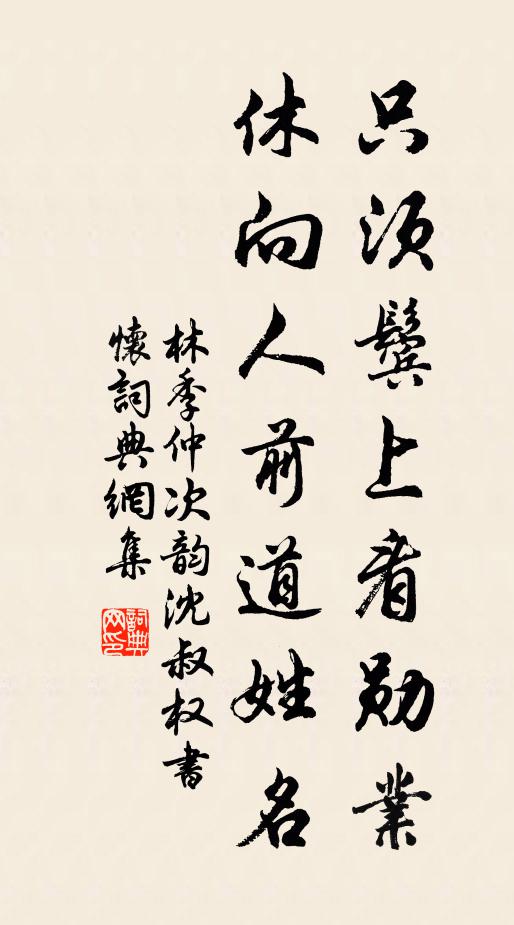 只须鬓上看勋業
休向人前道姓名
林季仲次韵沈叔权書
懷詞典網集
詞典网印